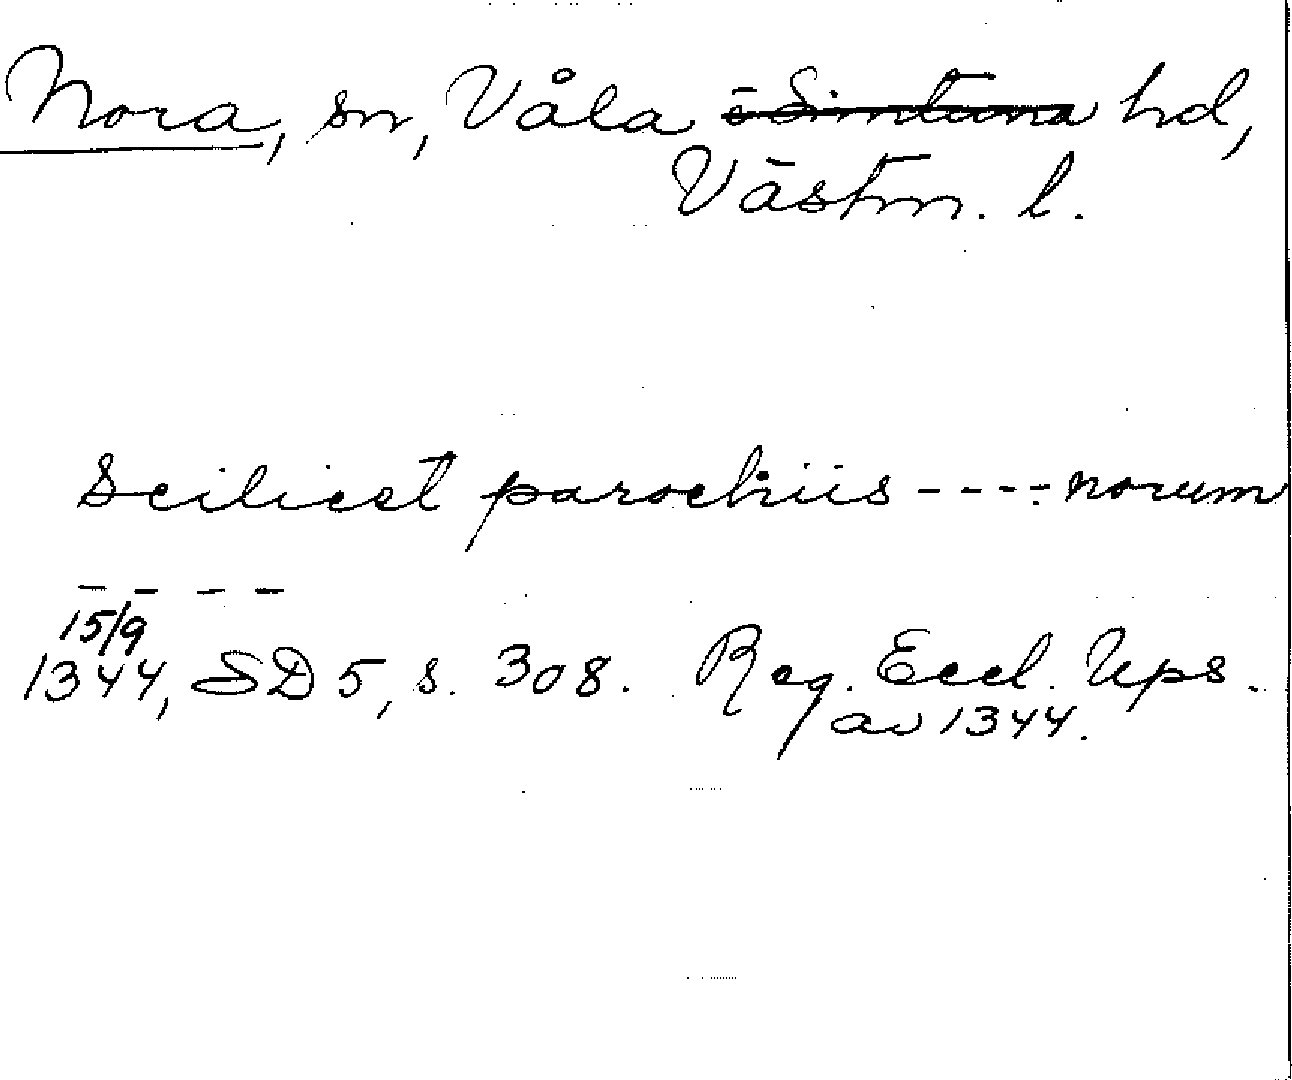 Nora, sn, Våla ö Simtuna hd,
Västm. l.
Scilicet parochiis - - - - norum
- - - -
15/9
1344, SD 5, s. 308. Reg. Eccl. Ups.
av 1344.